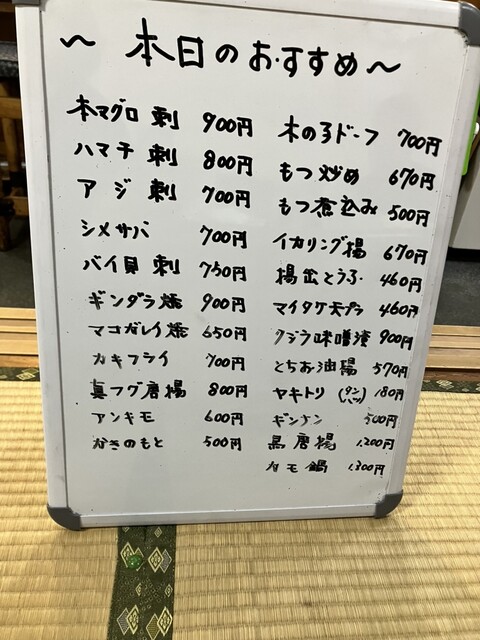 〜 本日のおすすめ〜
本マグロ 刺 900円
ハマチ 刺 800円
アジ 刺 700円
シメサバ 700円
バイ貝 刺 750円
ギンダラ焼 900円
マコガレイ焼 650円
カキフライ 700円
真フグ唐揚 800円
アンキモ 600円
かきのもと 500円
木の子ドーフ 700円
もつ炒め 670円
もつ煮込み 500円
イカリング揚 670円
揚出とうふ 460円
マイタケ天プラ 460円
クジラ味噌漬 900円
とちお油揚 570円
ヤキトリ (タン ハツ) 180円
ギンナン 500円
黒唐揚 1,200円
カモ鍋 1,300円